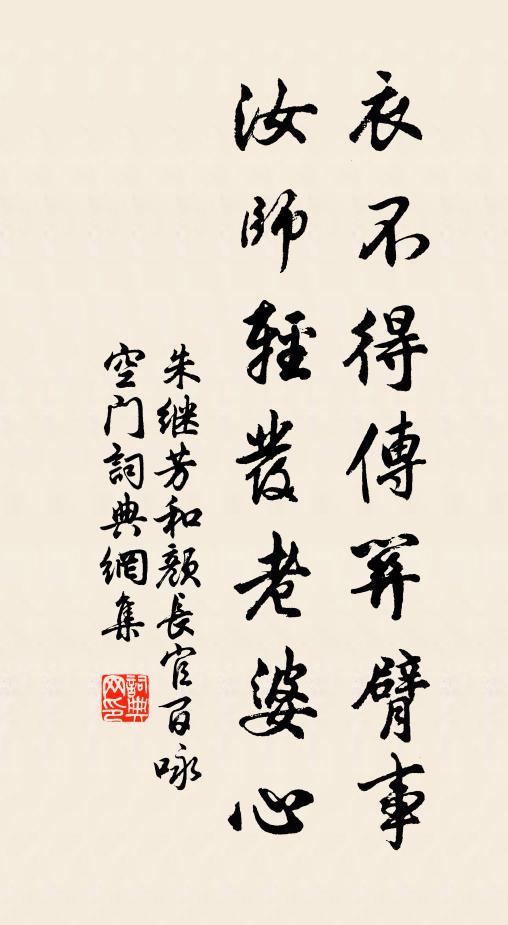 衣不得傳笄臂事
汝師輕發老婆心
朱继芳和顏長官百咏
空门詞典網集
詞典网印